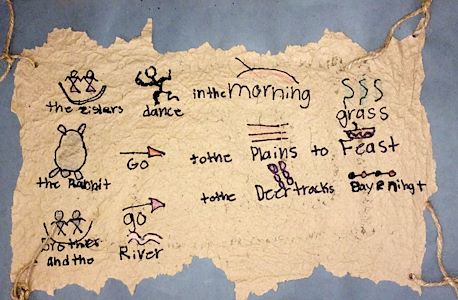 the sisters dance in the morning grass
the Rabbit Go to the Plains to Feast
Brothers go to the Deer tracks
and the River